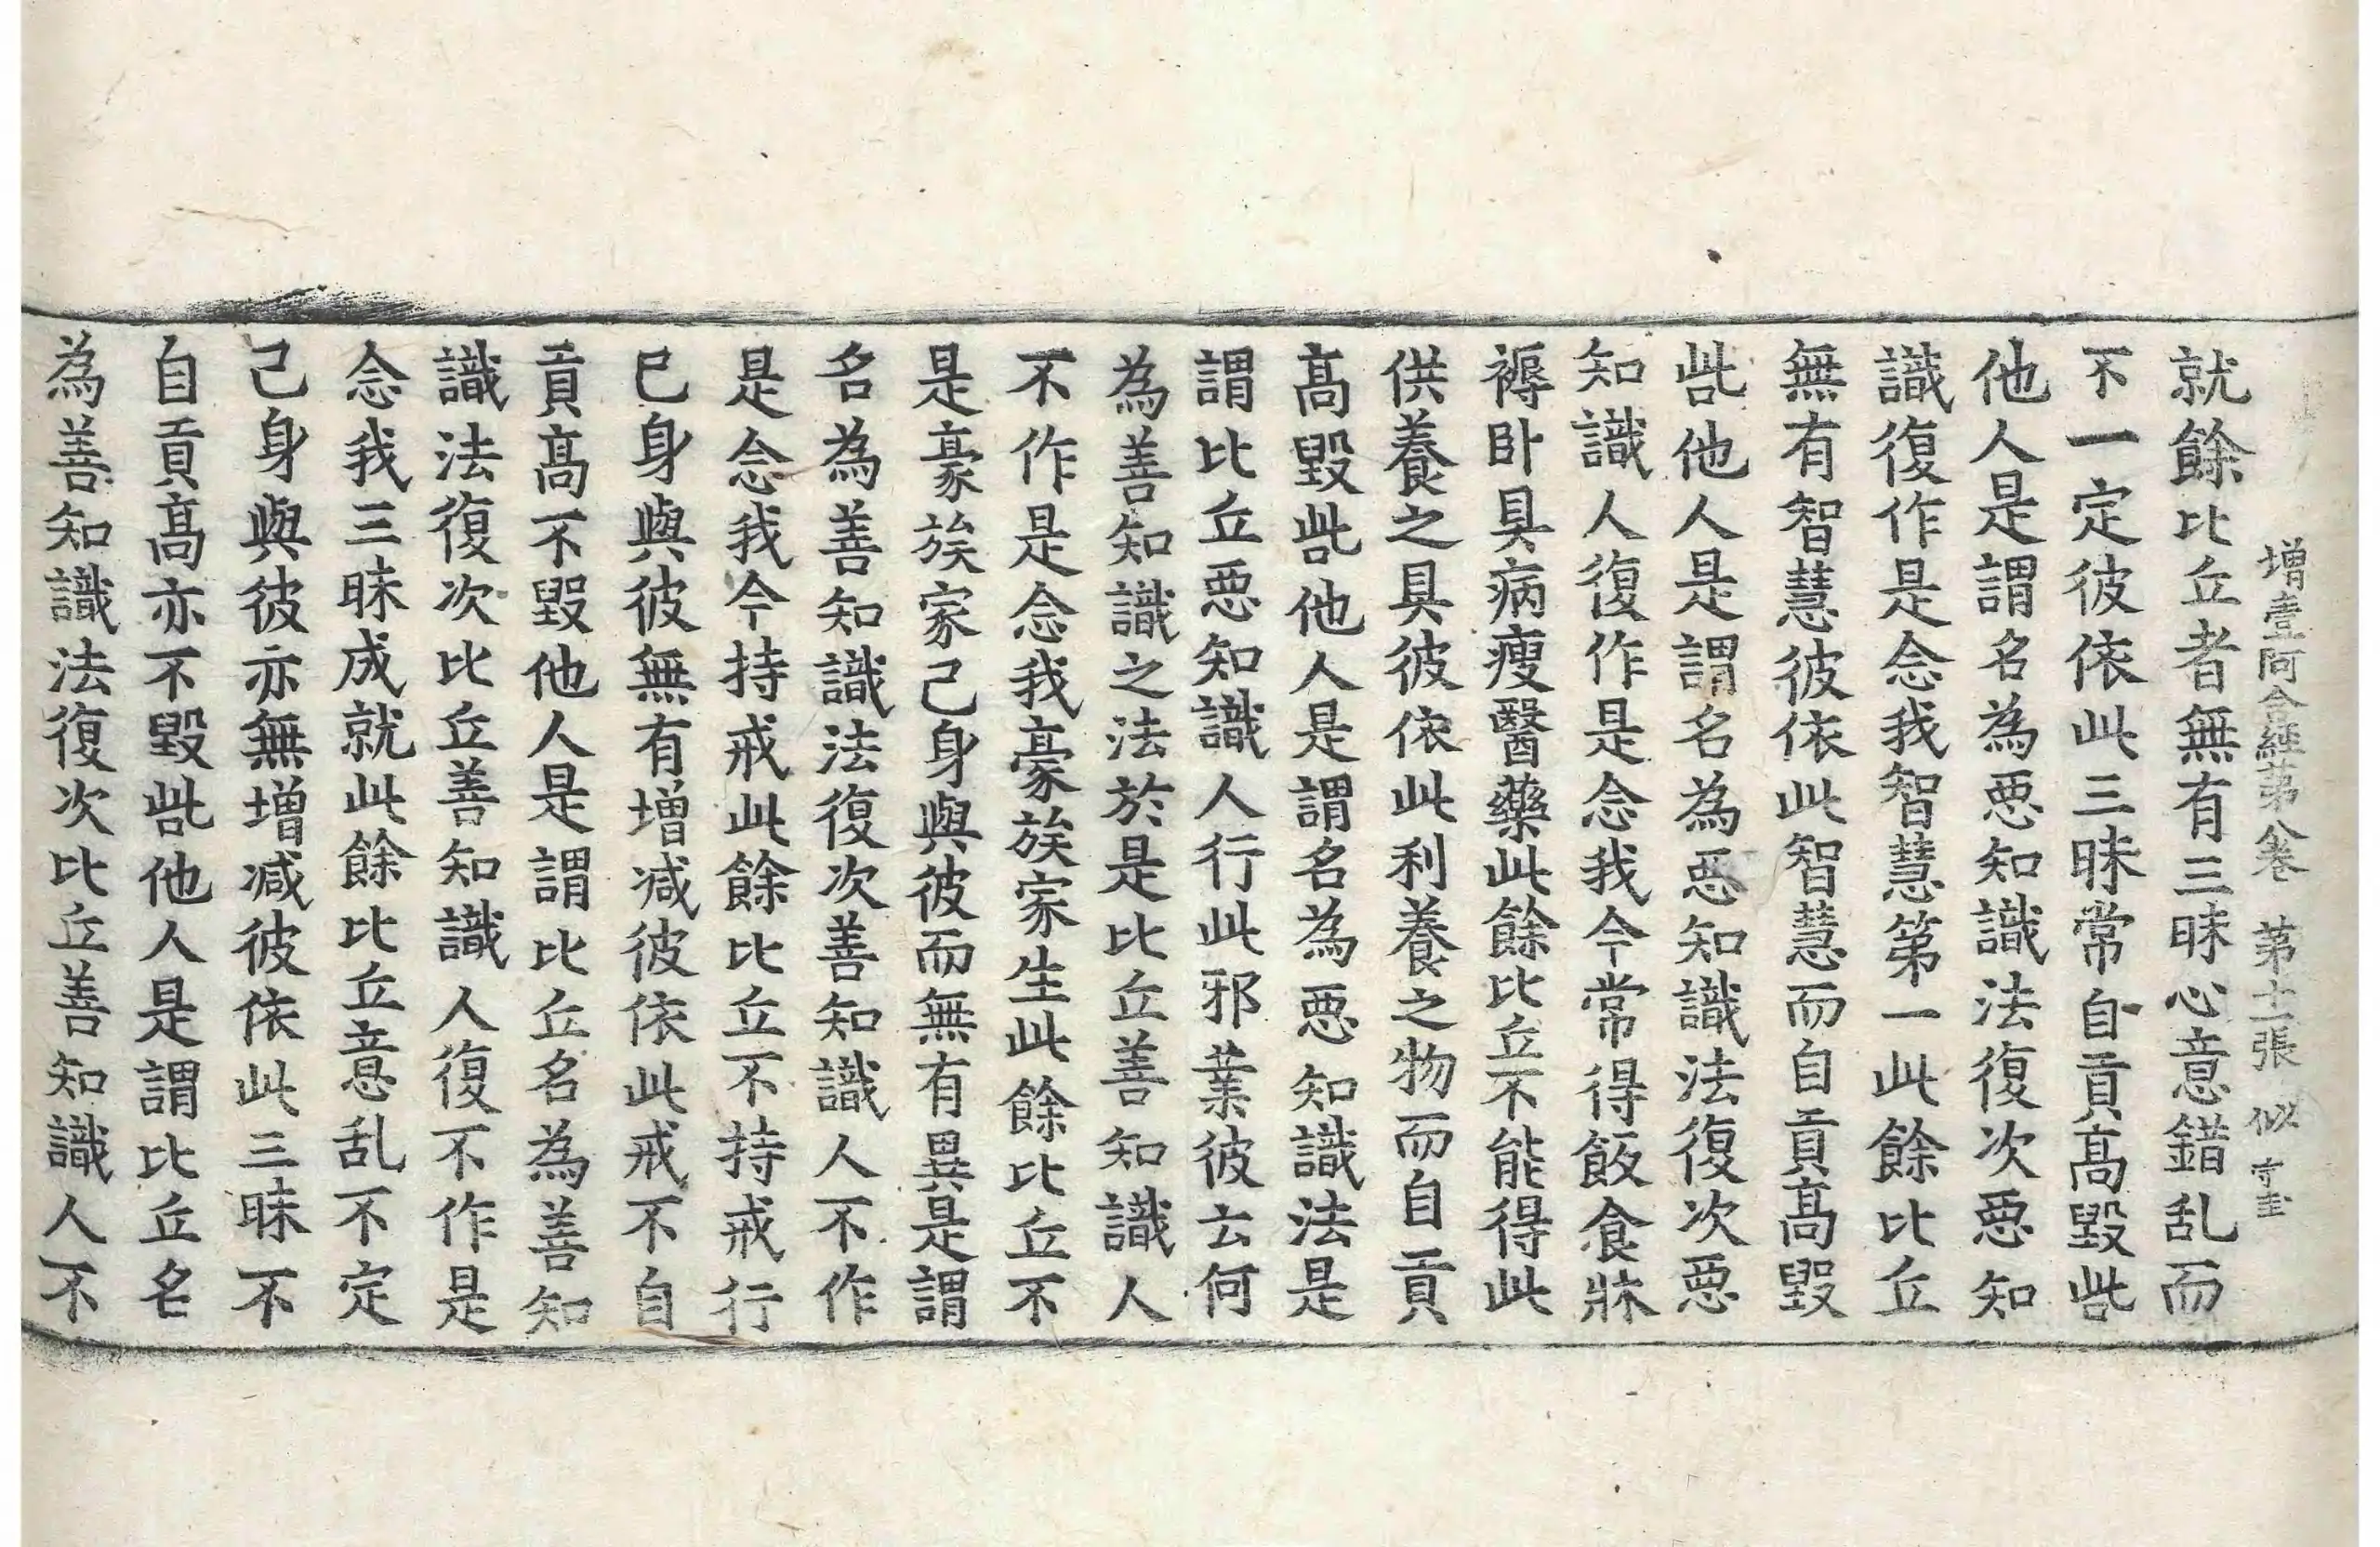 增壹阿含經第八卷 第十二張 似
就餘比丘者無有三昧心意錯乱而
不一定彼依此三昧常自貢髙毀呰
他人是謂名為惡知識法復次惡知
識復作是念我智慧第一此餘比丘
無有智慧彼依此智慧而自貢髙毀
呰他人是謂名為惡知識法復次惡
知識人復作是念我今常得飯食牀
褥卧具病瘦醫藥此餘比丘不能得此
供養之具彼依此利養之物而自貢
髙毀呰他人是謂名為惡知識法是
謂比丘惡知識人行此邪業彼云何
為善知識之法於是比丘善知識人
不作是念我豪族家生此餘比丘不
是豪族家己身與彼而無有異是謂
名為善知識法復次善知識人不作
是念我今持戒此餘比丘不持戒行
巳身與彼無有增减彼依此戒不自
貢髙不毀他人是謂比丘名為善知
識法復次比丘善知識人復不作是
念我三昧成就此餘比丘意乱不定
己身與彼亦無增减彼依此三昧不
自貢髙亦不毀呰他人是謂比丘名
為善知識法復次比丘善知識人不